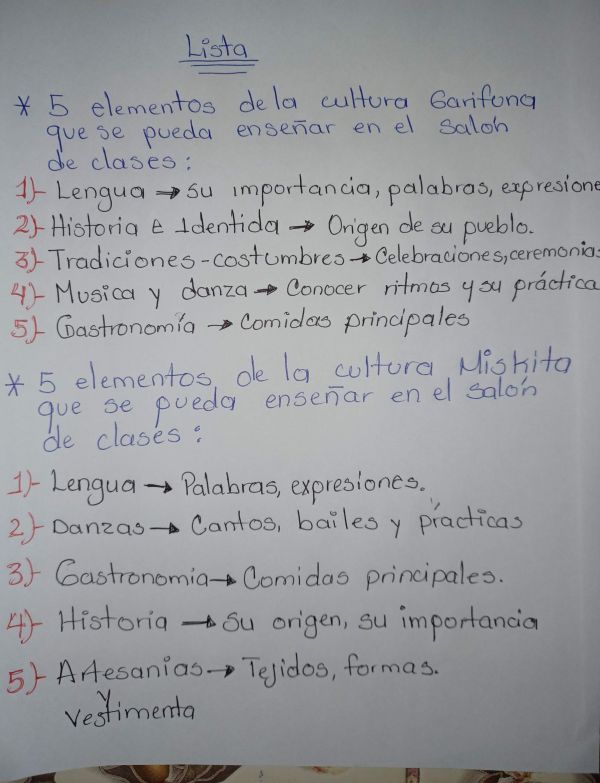 Lista
* 5 elementos de la cultura Garifuna
que se pueda enseñar en el salón
de clases:
1)- Lengua → su importancia, palabras, expresione
2)- Historia e Identida → Origen de su pueblo.
3)- Tradiciones - costumbres → Celebraciones, ceremonias
4)- Musica y danza → Conocer ritmos y su práctica
5)- Gastronomía → Comidas principales
* 5 elementos de la cultura Miskita
que se pueda enseñar en el salón
de clases:
1)- Lengua → Palabras, expresiones.
2)- Danzas → Cantos, bailes y prácticas
3)- Gastronomia → Comidas principales.
4)- Historia → Su origen, su importancia
5)- Artesanías → Tejidos, formas.
y
vestimenta